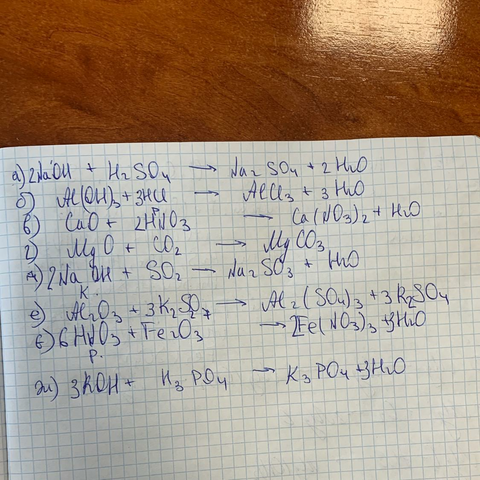 а) 2NaOH + H2SO4 → Na2SO4 + 2H2O
б) Al(OH)3 + 3HCl → AlCl3 + 3H2O
в) CaO + 2HNO3 → Ca(NO3)2 + H2O
г) MgO + CO2 → MgCO3
д) 2NaOH + SO2 → Na2SO3 + H2O
к.
е) Al2O3 + 3K2S2O7 → Al2(SO4)3 + 3K2SO4
е) 6HNO3 + Fe2O3 → 2Fe(NO3)3 + 3H2O
р.
ж) 3KOH + H3PO4 → K3PO4 + 3H2O